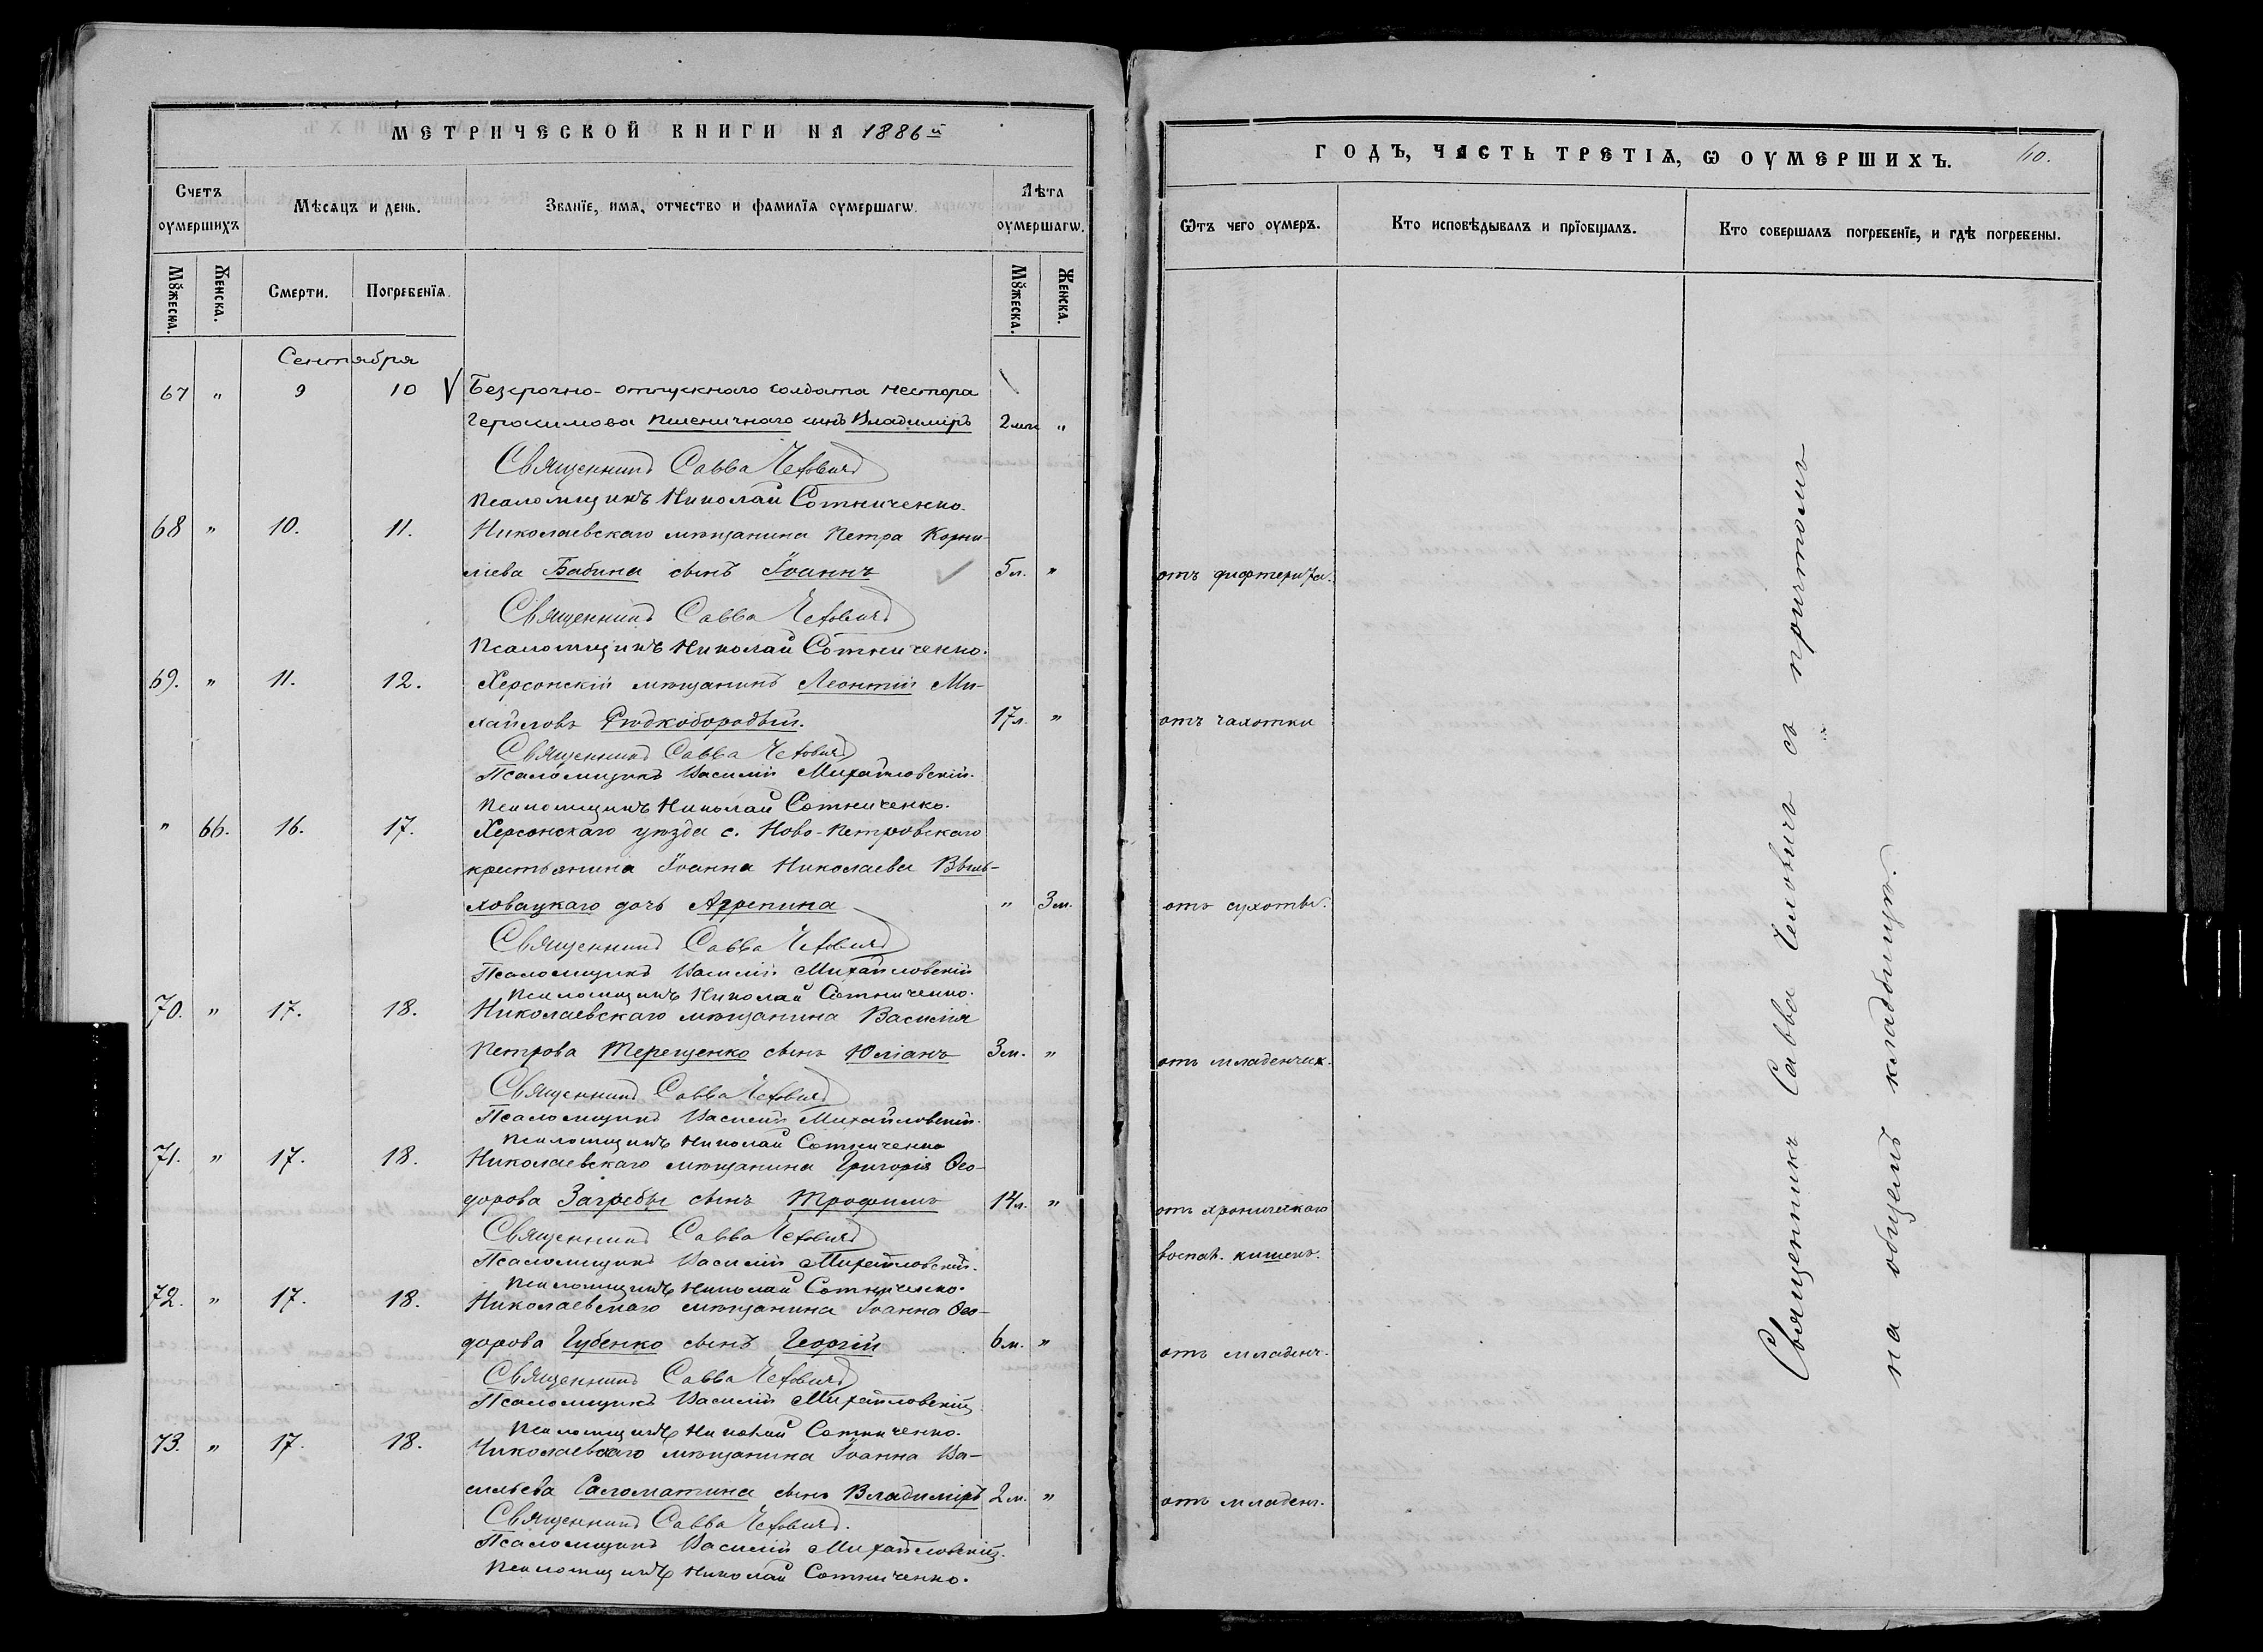 МЕТРИЧЕСКОЙ КНИГИ НА 1886й
Счетъ оумершихъ
Мѣсяцъ и день.
Званїе, имя, отчество и фамилїя оумершагѡ.
Лѣта оумершагѡ.
Мꙋжеска.
Женска.
Смерти.
Погребенїя.
Мꙋжеска.
Женска.
Сентября
67 " 9 10 √ Безсрочно-отпускнаго солдата Нестора
Герасимова Пшеничнаго сынъ Владиміръ 2 м. "
Священникъ Савва Чехович
Псаломщикъ Николай Сотниченко.
68 " 10. 11. Николаевскаго мѣщанина Петра Корни-
лиева Бабина сынъ Іоаннъ 5 л. "
Священникъ Савва Чехович
Псаломщикъ Николай Сотниченко.
69. " 11. 12. Херсонскій мѣщанинъ Леонтій Ми-
хайловъ Рѣдкобородый. 17 л. "
Священникъ Савва Чехович
Псаломщикъ Василій Михайловскій.
Псаломщикъ Николай Сотниченко.
" 66. 16. 17. Херсонскаго уѣзда с. Ново-Петровскаго
крестьянина Іоанна Николаева Выль-
ховацкаго дочь Агрепина " 3 м.
Священникъ Савва Чехович
Псаломщикъ Василій Михайловскій
Псаломщикъ Николай Сотниченко.
70. " 17. 18. Николаевскаго мѣщанина Василія
Петрова Терещенко сынъ Юліанъ 3 м. "
Священникъ Савва Чехович
Псаломщикъ Василій Михайловскій.
Псаломщикъ Николай Сотниченко
71. " 17. 18. Николаевскаго мѣщанина Григорія Ѳео-
дорова Загребы сынъ Трофимъ 14 л. "
Священникъ Савва Чехович
Псаломщикъ Василій Михайловскій.
Псаломщикъ Николай Сотниченко.
72. " 17. 18. Николаевскаго мѣщанина Іоанна Ѳео-
дорова Губенко сынъ Георгій 6 м. "
Священникъ Савва Чехович
Псаломщикъ Василій Михайловскій
Псаломщикъ Николай Сотниченко.
73. " 17. 18. Николаевскаго мѣщанина Іоанна Ва-
сильева Саломатина сынъ Владиміръ 2 м. "
Священникъ Савва Чехович.
Псаломщикъ Василій Михайловскій.
Псаломщикъ Николай Сотниченко.
ГОДЪ, ЧАСТЬ ТРЕТІЯ, Ѡ ОУМЕРШИХЪ. 40.
Ѿтъ чего оумеръ.
Кто исповѣдывалъ и прїобщалъ.
Кто совершалъ погребенїе, и гдѣ погребены.
отъ дифтерита.
отъ чахотки
отъ сухоты.
отъ младенческ.
отъ хроническаго
воспал. кишекъ.
отъ младенч.
отъ младен.
Священникъ Савва Чеховичъ съ причтомъ
на общемъ кладбищѣ.